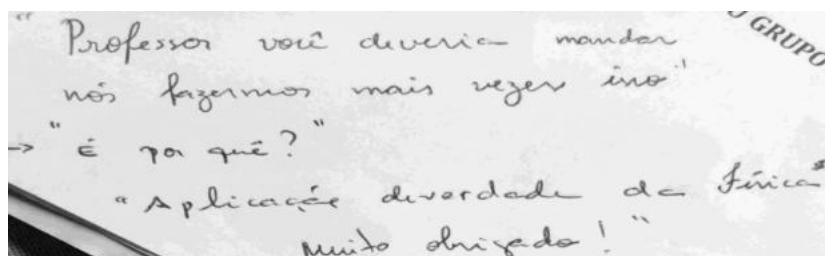 "Professor você deveria mandar
O GRUPO
nós fazermos mais vezes isso"
→ "É por quê?"
"Aplicação deverdade da Física"
Muito obrigado!"